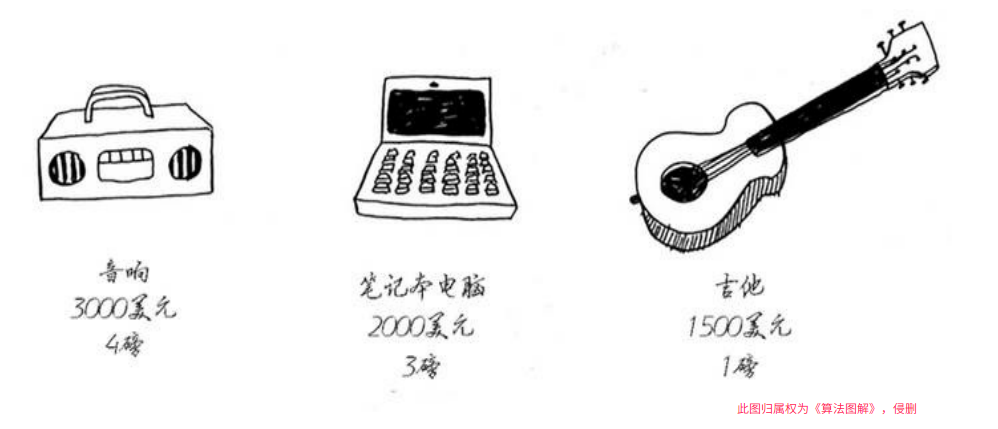 音响
3000美元
4磅
笔记本电脑
2000美元
3磅
吉他
1500美元
1磅
此图归属权为《算法图解》，侵删